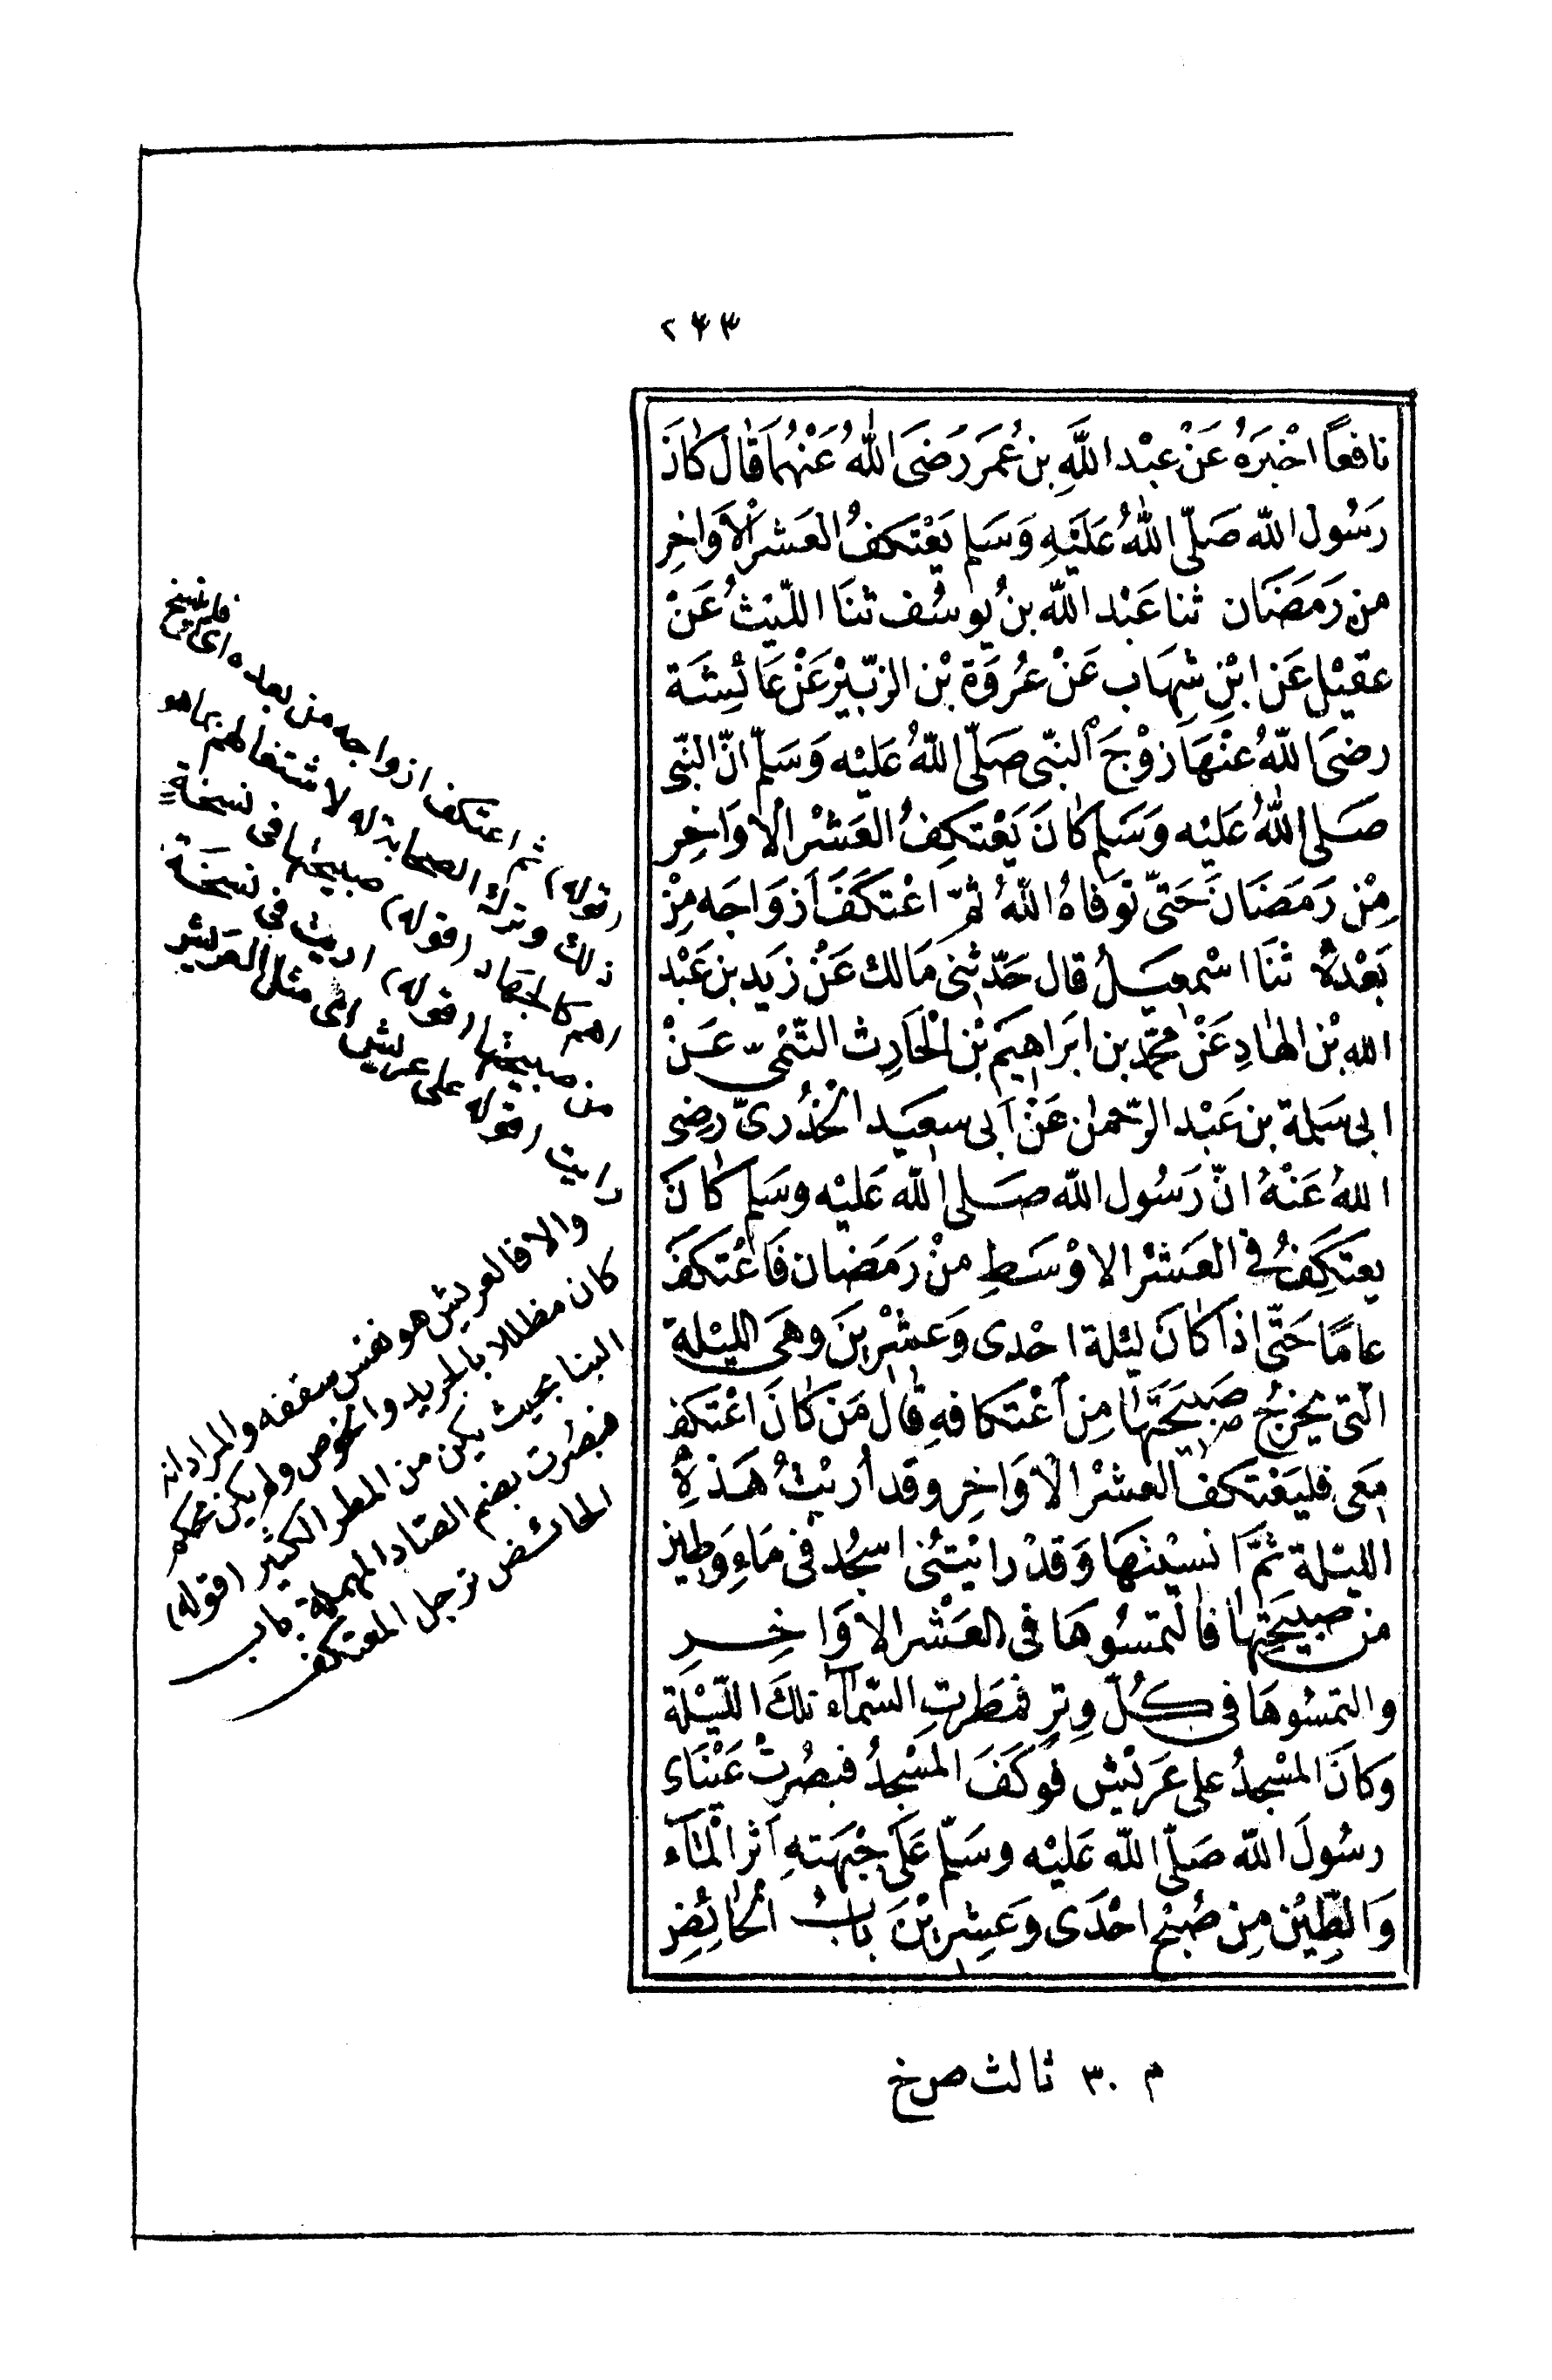 ٢٤٣
نافعاً اخْبَرَهُ عَنْ عبْد اللَّهِ بن عُمَرَ رَضىَ اللهُ عَنْهُمَا قَالَ كَانَ
رَسُول الله صَلّى اللهُ عَلَيْهِ وَسَلم يَعْتَكفُ العَشْرَ الْاَوَاخِرِ
من رَمَضَان ثنا عَبْد الله بنُ يوسُف ثنَا اللّيْثُ عَنْ
عقيْل عَن ابْنِ شِهَاب عَنْ عُروَة بْن الزبّيْر عَنْ عَائشَة
رضىَ اللهُ عنْهَا زوْجَ النبّى صَلّى اللهُ عَليْه وَسَلّم انّ النبّى
صَلى اللهُ عَليْه وَسَلم كَانَ يَعْتكِفُ العَشْر الْاوَاخِر
مِنْ رَمَضَانَ حَتىّ توَفاهُ اللهُ ثمّ اعْتكَفَ اَزوَاجَه مِنْ
بَعْدهُ ثنَا اسْمعيَلُ قال حَدّثنى مَالك عَنْ زيَد بن عَبْد
الله بْن الهَادِ عَنْ محَمّد بن ابَراهيَم بْن الْحَارِث التّيْمىّ عَنْ
ابى سَلمة بن عَبْد الرّحمان عَنْ اَبى سعيَد الْخُدْرىّ رضِى
اللهُ عَنْهُ انّ رَسُول الله صَلى الله عَليْه وسَلم كَانَ
يعتَكِفُ فى العَشْر الاوْسَطِ منْ رَمَضان فَاعْتكَفَ
عامًا حَتّى اذا كَانَ ليْلة احْدى وَعشْرينَ وهىَ الليْلة
التّى يخرجُ صَبيحَتَهَا مِن اعْتكافهِ قال مَن كَانَ اعْتكف
مَعى فليَعْتكف العشْر الْاوَاخِر وقد أريْتُ هَذهِ
الليْلة ثمَّ انسيْتهَا وَقدْ رايْتُنى اسجُد فى مَاءِ وَطين
من صبيحَتِهَا فالتَمسُوهَا فى العَشْر الاوَاخِرِ
والتمسُوهَا فى كُلّ وِترٍ فمَطَرتِ السّمَآء تلكَ اللّيْلَة
وَكانَ المسْجدُ على عَريْش فوَكَفَ المَسْجدُ فبصُرتْ عَيْنَاى
رسُولَ اللّه صَلّى اللّه عَليْه وسَلّم عَلى جْبهَتهِ اَثر الْمَآء
وَالطِّيْن مِن صُبْح احْدَى وَعشِريْنَ بابُ الْحَائِضِ
(قوله) ثم اعتكف ازواجه من بعده اى فلم ينسخ
ذلك وترك الصحابة له لاشتغالهم بما هو
اهم كالجهاد (قوله) صبيحتها فى نسخة
من صبيحتها (قوله) اريت فى نسخة
رايت (قوله على عريش اى مثل العريش
والا فالعريش هو نفس سقفه والمراد انه
كان مظللا بالجريد والخوص ولم يكن محكم
البنا بحيث يكن من المطر الكثير (قوله)
فبصرت بضم الصاد المهملة باب
الحائض ترجل المعتكف
م ٣٠ ثالث ص خ